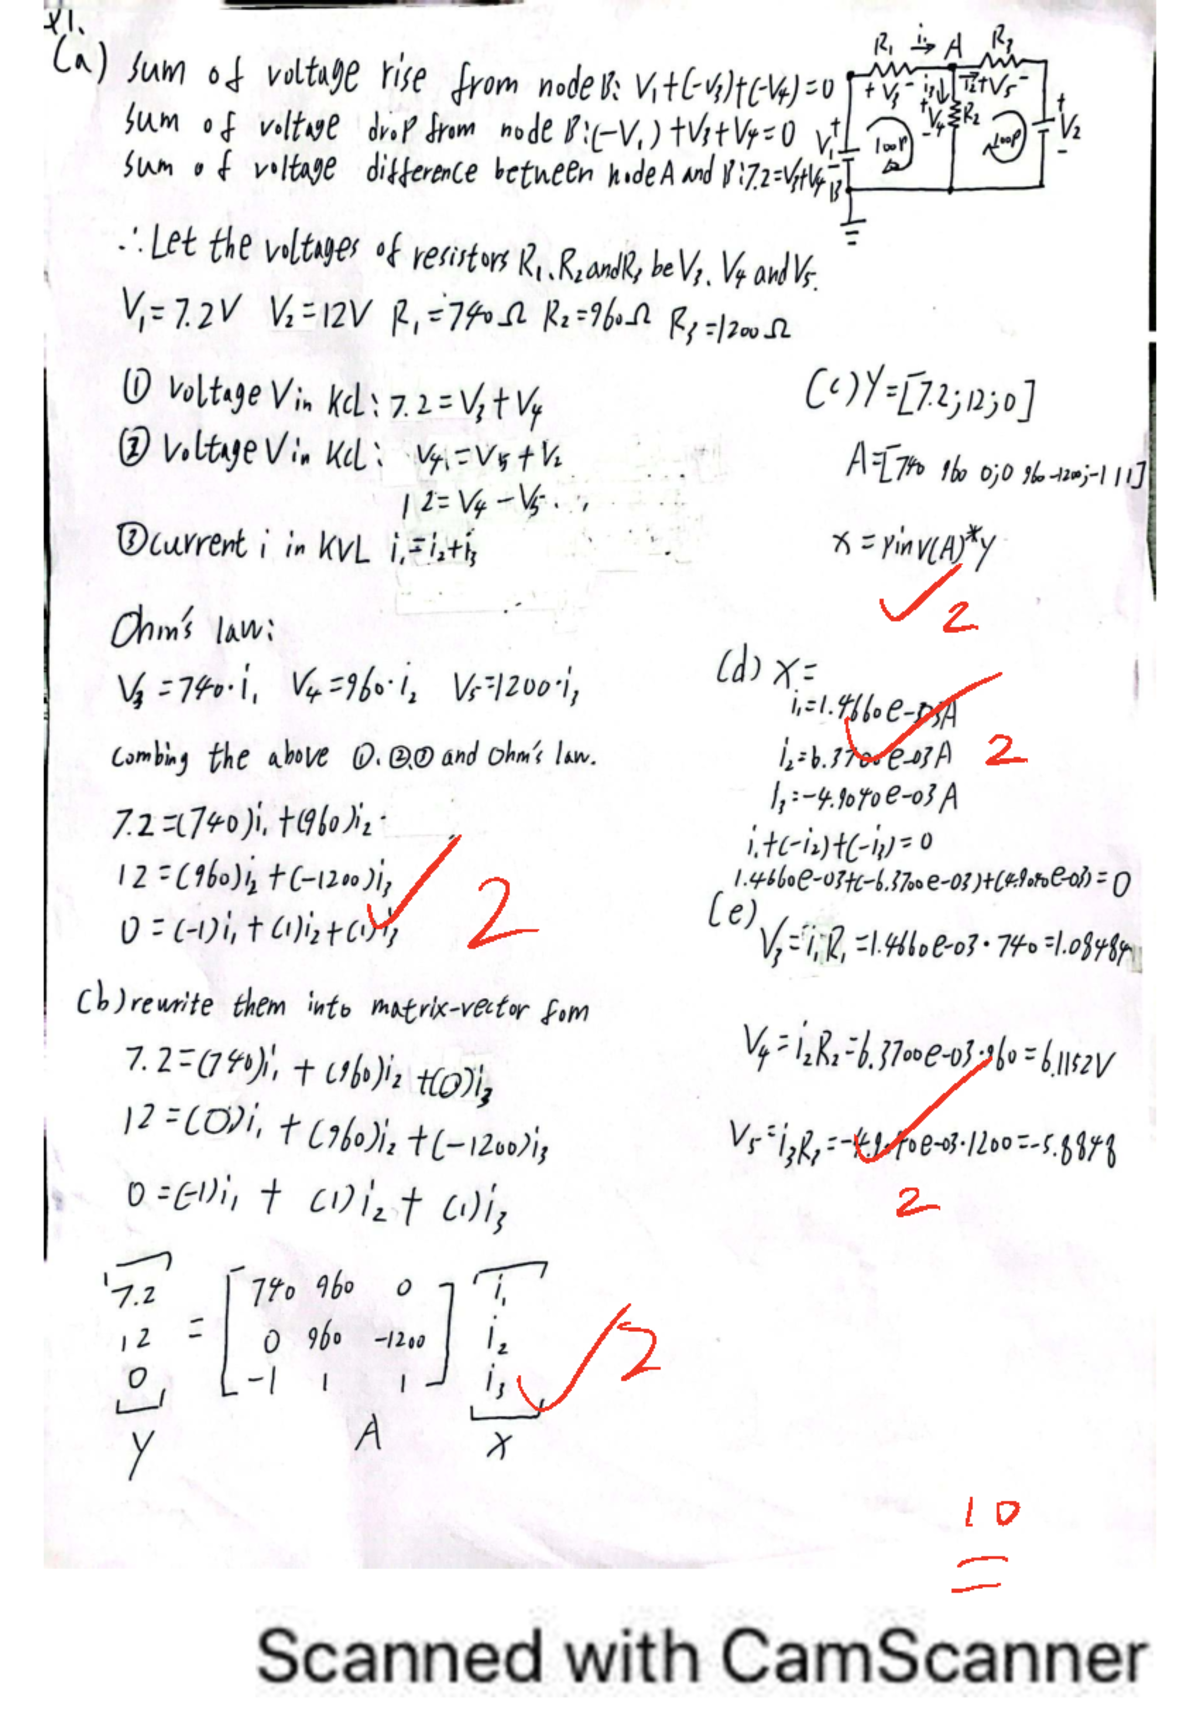 (a) Sum of voltage rise from node B: V₁+(-V₃)+(-V₄)=0
Sum of voltage drop from node B:(-V₁)+V₃+V₄=0
Sum of voltage difference between node A and B:7.2=V₃+V₄
R₁ i₁ → A R₃
+ V₃ - i₃↓ i₂ + V₅ -
+ V₄ - R₂
V₁ + -
loop
loop
+ V₂ -
B
∴ Let the voltages of resistors R₁、R₂ and R₃ be V₃、V₄ and V₅.
V₁=7.2V V₂=12V R₁=740Ω R₂=960Ω R₃=1200Ω
① voltage V in KCL: 7.2=V₃+V₄
② Voltage V in KCL: V₄=V₅+V₂
12=V₄-V₅
③ current i in KVL i₁=i₂+i₃
Ohm's law:
V₃=740·i₁ V₄=960·i₂ V₅=1200·i₃
Combing the above ①.②③ and Ohm's law.
7.2=(740)i₁+(960)i₂
12=(960)i₂+(-1200)i₃
0=(-1)i₁+(1)i₂+(1)i₃
2
(b) rewrite them into matrix-vector fom
7.2=(740)i₁+(960)i₂+(0)i₃
12=(0)i₁+(960)i₂+(-1200)i₃
0=(-1)i₁+(1)i₂+(1)i₃
7.2 740 960 0 i₁
12 = 0 960 -1200 i₂
0 -1 1 1 i₃
Y A X
2
(c) Y=[7.2;12;0]
A=[740 960 0;0 960 -1200;-1 1 1]
X=pinv(A)*Y
2
(d) X=
i₁=1.4660e-03A
i₂=6.3700e-03A
2
i₃=-4.9040e-03A
i₁+(-i₂)+(-i₃)=0
1.4660e-03+(-6.3700e-03)+(4.9040e-03)=0
(e)
V₃=i₁R₁=1.4660e-03·740=1.08484
V₄=i₂R₂=6.3700e-03·960=6.1152V
V₅=i₃R₃=-4.9040e-03·1200=-5.8848
2
10
Scanned with CamScanner